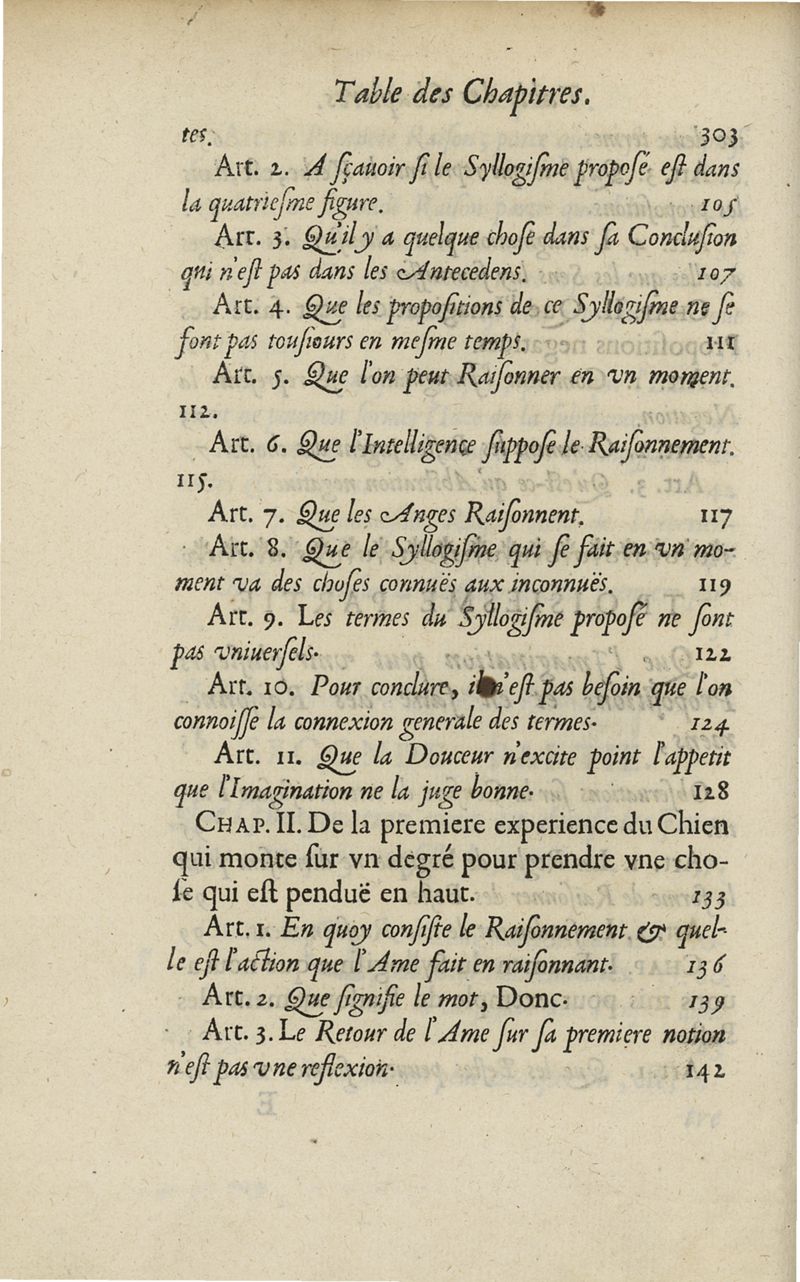 Table des Chapitres.
tes. 303
Art. 2. A sçauoir si le Syllogisme proposé est dans
la quatriesme figure. 105
Art. 3. Qu'il y a quelque chose dans sa Conclusion
qui n'est pas dans les Antecedens. 107
Art. 4. Que les propositions de ce Syllogisme ne se
font pas tousiours en mesme temps. 111
Art. 5. Que l'on peut Raisonner en vn moment.
112.
Art. 6. Que l'Intelligence suppose le Raisonnement.
115.
Art. 7. Que les Anges Raisonnent. 117
Art. 8. Que le Syllogisme qui se fait en vn mo-
ment va des choses connuës aux inconnuës. 119
Art. 9. Les termes du Syllogisme proposé ne sont
pas vniuersels. 122
Art. 10. Pour conclure, il n'est pas besoin que l'on
connoisse la connexion generale des termes. 124
Art. 11. Que la Douceur n'excite point l'appetit
que l'Imagination ne la juge bonne. 128
CHAP. II. De la premiere experience du Chien
qui monte sur vn degré pour prendre vne cho-
se qui est penduë en haut. 133
Art. 1. En quoy consiste le Raisonnement & quel-
le est l'action que l'Ame fait en raisonnant. 136
Art. 2. Que signifie le mot, Donc. 139
Art. 3. Le Retour de l'Ame sur sa premiere notion
n'est pas vne reflexion. 142